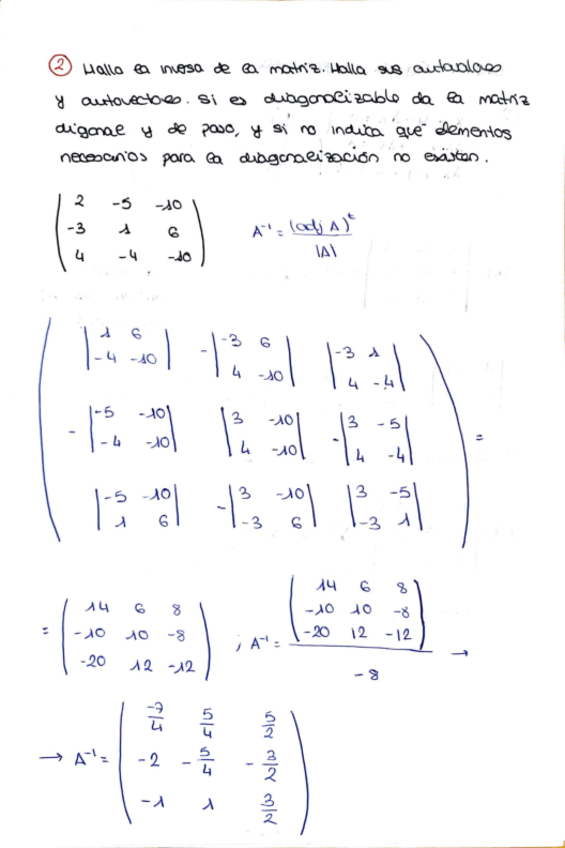 ② Halla la inversa de la matriz. Halla sus autovalores
y autovectores. Si es diagonalizable da la matriz
digonal y de paso, y si no indica qué elementos
necesarios para la diagonalización no existen.
( 2 -5 -10 )
( -3 1 6 ) A⁻¹ = (adj A)ᵗ / |A|
( 4 -4 -10 )
( |1 6; -4 -10| -|-3 6; 4 -10| |-3 1; 4 -4| )
( -|-5 -10; -4 -10| |3 -10; 4 -10| -|3 -5; 4 -4| ) =
( |-5 -10; 1 6| -|3 -10; -3 6| |3 -5; -3 1| )
= ( 14 6 8 ; -10 10 -8 ; -20 12 -12 ) ; A⁻¹ = ( 14 6 8 ; -10 10 -8 ; -20 12 -12 ) / -8 →
→ A⁻¹ = ( -7/4 5/4 5/2 ; -2 -5/4 -3/2 ; -1 1 3/2 )